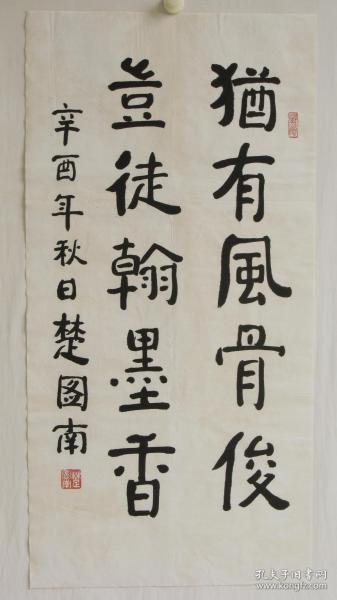 猶有風骨俊
豈徒翰墨香
辛酉年秋日楚图南
孔夫子旧书网
www.kongfz.com